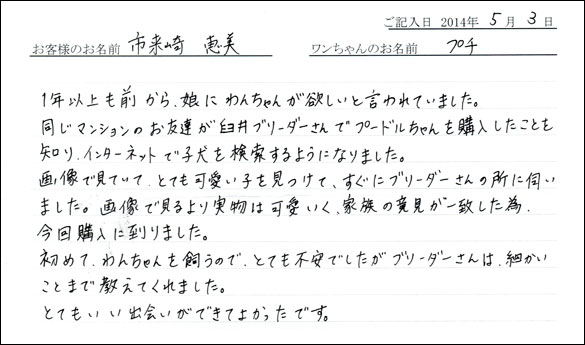 ご記入日 2014年 5月 3日
お客様のお名前 市来崎 恵美 ワンちゃんのお名前 プチ
1年以上も前から、娘にわんちゃんが欲しいと言われていました。
同じマンションのお友達が臼井ブリーダーさんでプードルちゃんを購入したことを
知り、インターネットで子犬を検索するようになりました。
画像で見ていて、とても可愛い子を見つけて、すぐにブリーダーさんの所に伺い
ました。画像で見るより実物は可愛いく、家族の意見が一致した為、
今回購入に到りました。
初めて、わんちゃんを飼うので、とても不安でしたがブリーダーさんは、細かい
ことまで教えてくれました。
とてもいい出会いができてよかったです。